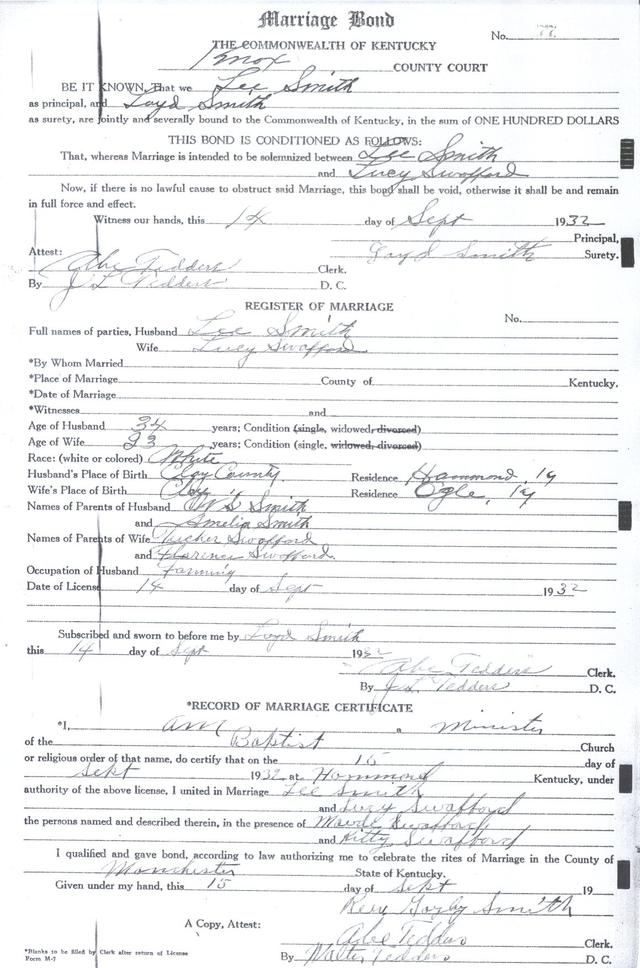 Marriage Bond
No.
THE COMMONWEALTH OF KENTUCKY
Knox COUNTY COURT
BE IT KNOWN, That we Lee Smith
as principal, and Loyd Smith
as surety, are jointly and severally bound to the Commonwealth of Kentucky, in the sum of ONE HUNDRED DOLLARS
THIS BOND IS CONDITIONED AS FOLLOWS:
That, whereas Marriage is intended to be solemnized between Lee Smith
and Lucy Swafford
Now, if there is no lawful cause to obstruct said Marriage, this bond shall be void, otherwise it shall be and remain
in full force and effect.
Witness our hands, this 14 day of Sept 1932
Principal,
Attest: Loyd Smith Surety.
Abe Tedders Clerk.
By J L Tedders D. C.
REGISTER OF MARRIAGE
No.
Full names of parties, Husband Lee Smith
Wife Lucy Swafford
*By Whom Married
*Place of Marriage County of Kentucky.
*Date of Marriage
*Witnesses and
Age of Husband 34 years; Condition (single, widowed, divorced)
Age of Wife 23 years; Condition (single, widowed, divorced)
Race: (white or colored) White
Husband's Place of Birth Clay County Residence Hammond, Ky
Wife's Place of Birth Clay " Residence Ogle, Ky
Names of Parents of Husband W S Smith
and Amelia Smith
Names of Parents of Wife Swafford
and Florence Swafford.
Occupation of Husband Farming
Date of License 14 day of Sept 1932
Subscribed and sworn to before me by Loyd Smith
this 14 day of Sept 1932
Abe Tedders Clerk.
By J.L. Tedders D. C.
*RECORD OF MARRIAGE CERTIFICATE
*I, am a Minister
of the Baptist Church
or religious order of that name, do certify that on the 15 day of
Sept 1932 at Hammond Kentucky, under
authority of the above license, I united in Marriage Lee Smith
and Lucy Swafford
the persons named and described therein, in the presence of Maude Swafford
and Kitty Swafford
I qualified and gave bond, according to law authorizing me to celebrate the rites of Marriage in the County of
Manchester State of Kentucky.
Given under my hand, this 15 day of Sept 19
Rev Smith
A Copy, Attest:
Abe Tedders Clerk.
By Walter Tedders D. C.
*Blanks to be filled by Clerk after return of License
Form M-7